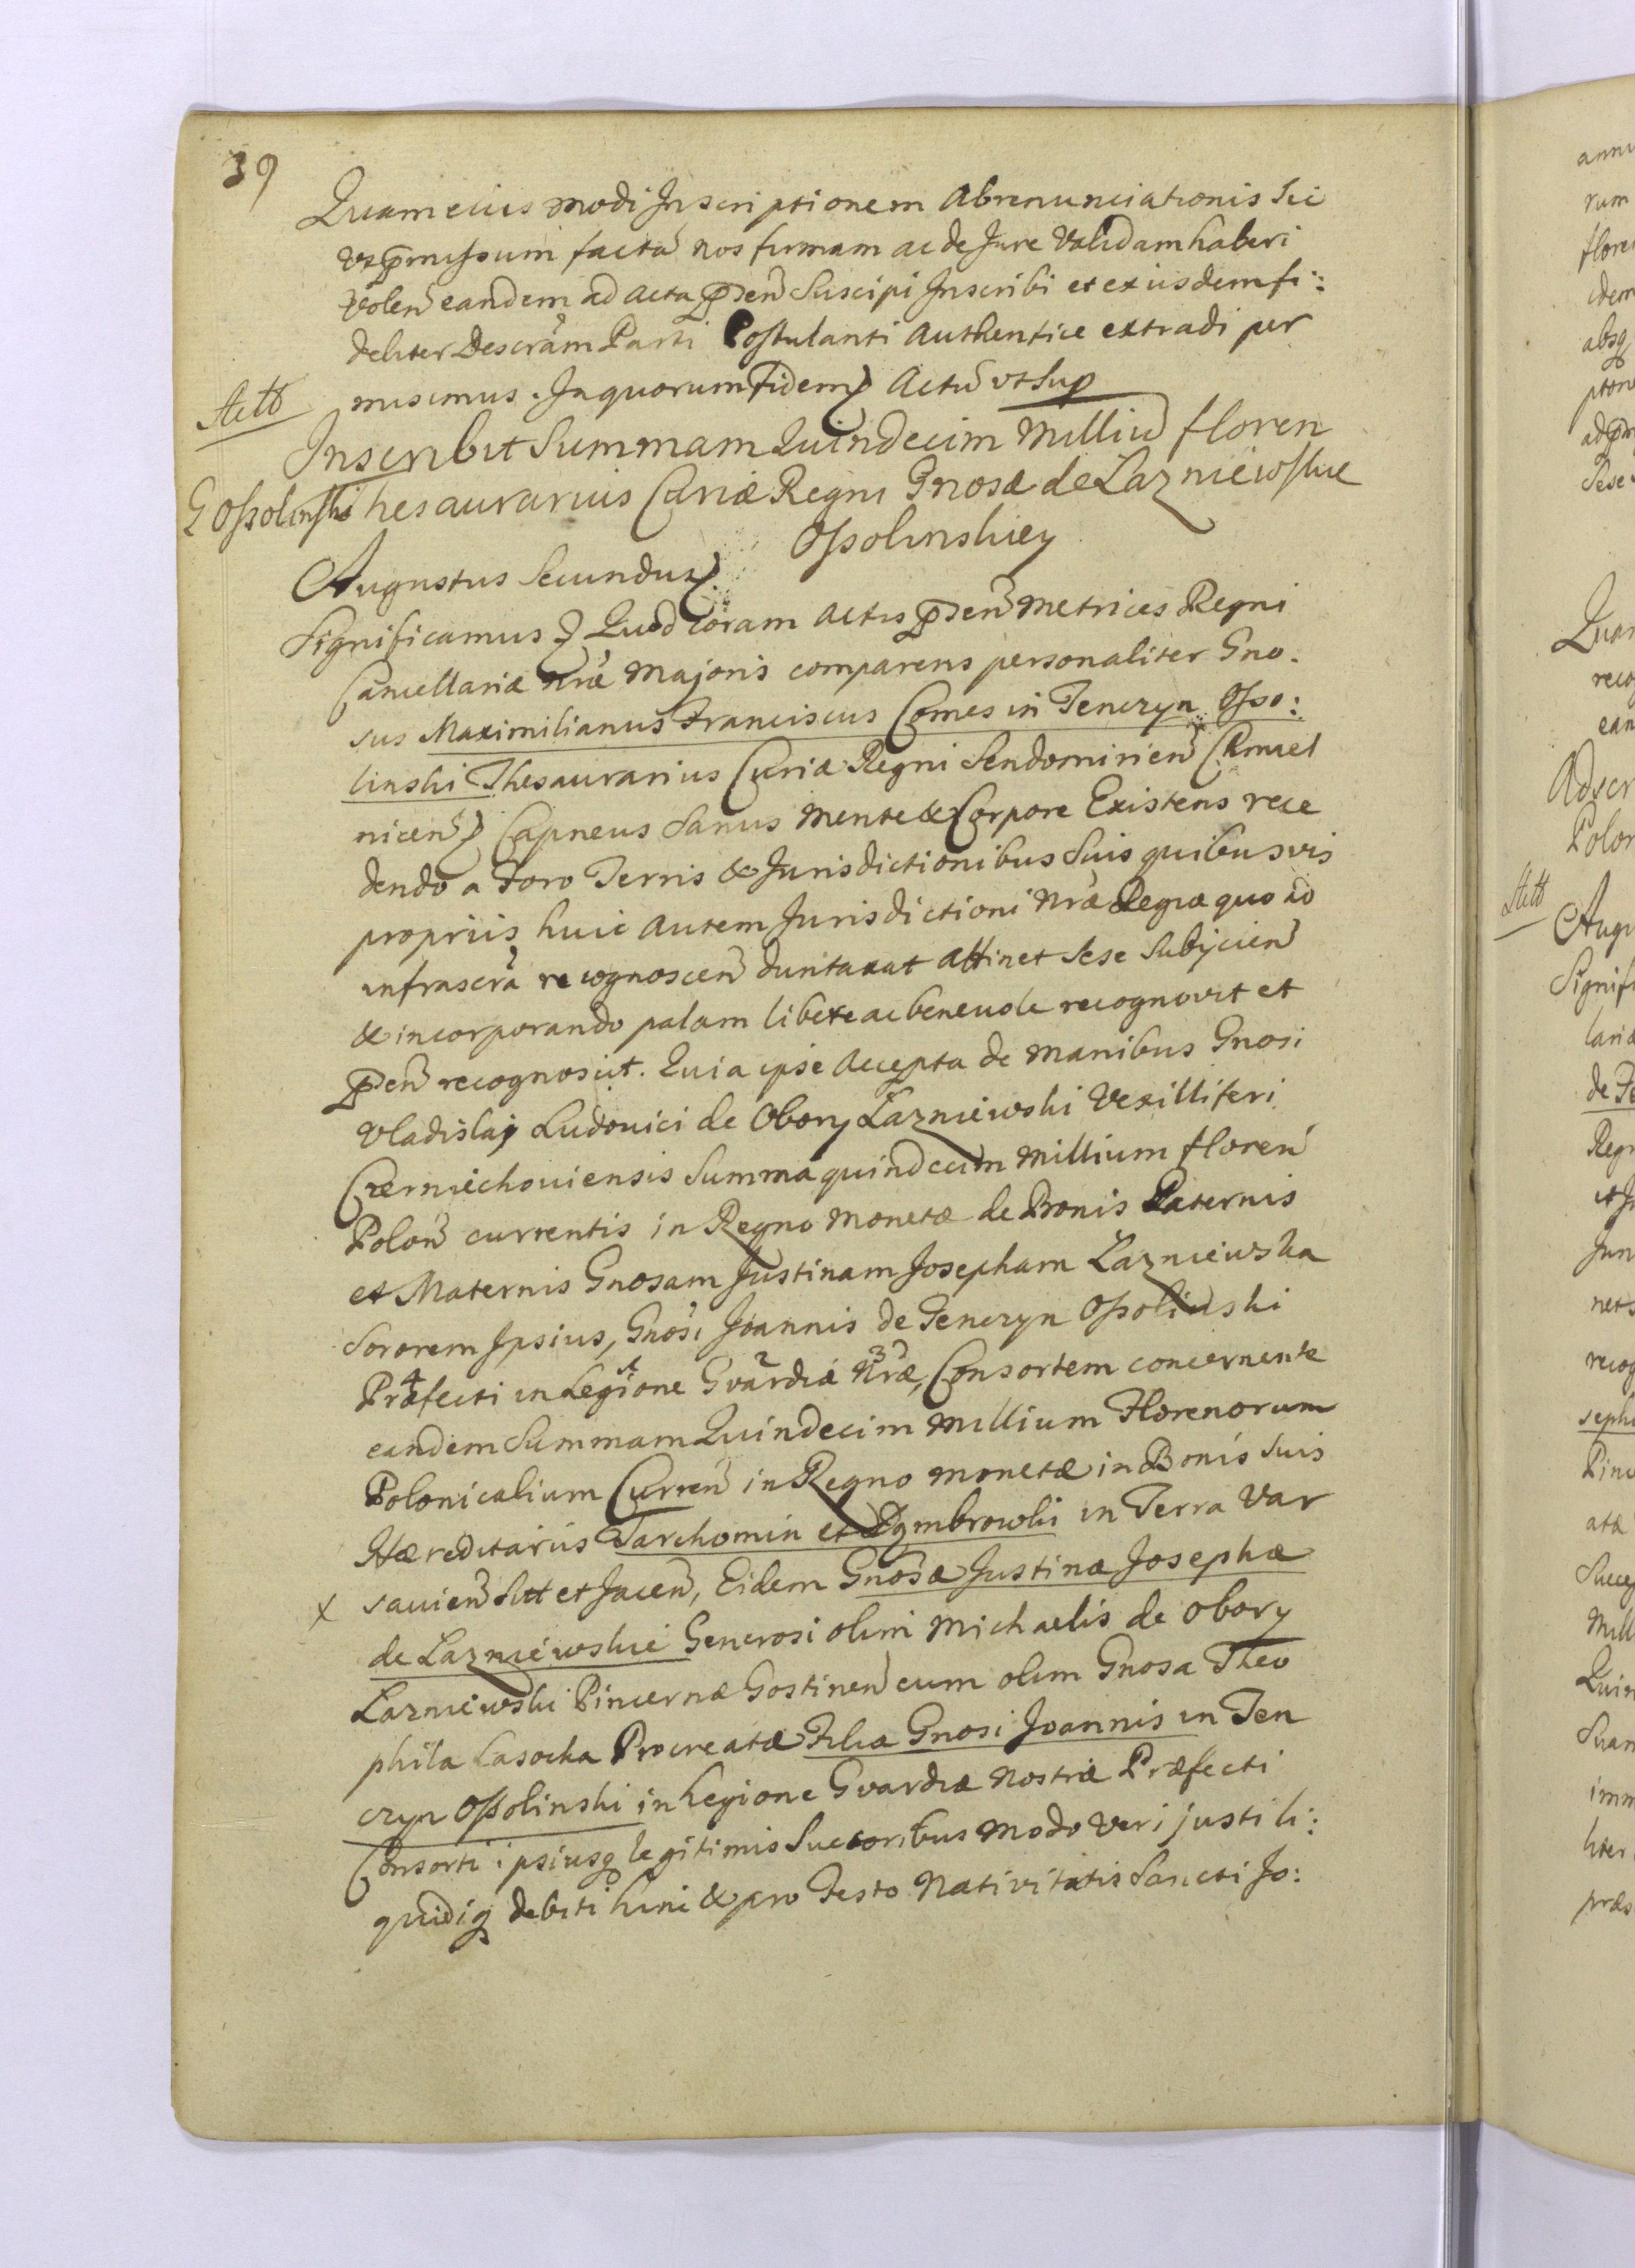 39
Quam eius modi Inscriptionem Abrenunciationis sic
ut p̄missum factã nos firmam ac de Jure Validam haberi
volen̄ eandem ad Acta p̄sen̄ Suscipi Inscribi et ex iisdem fi:
deliter Descrãm Parti Postulanti Authentice extradi per
misimus. In quorum Fidem Actũ ut Sup
Inscribit Summam Quindecim Milliũ floren
G Ossolinski Thesaurarius Curiæ Regni Gnosæ de Lazniewskie
Ossolinskiey
Augustus Secundus
Significamus Quod Coram Actis p̄sen̄ Metrices Regni
Cancellariæ Nræ Majoris comparens personaliter Gno.
sus Maximilianus Franciscus Comes in Tenczyn Osso:
linski Thesaurarius Curiæ Regni Sendomirien̄ Chmiel
nicen̄ Capneus Sanus Mente & Corpore Existens rece
dendo a Foro Terris & Jurisdictionibus Suis quibusvis
propriis huic autem Jurisdictioni Nræ Regiæ quo ad
infrascrã recognoscen̄ duntaxat attinet Sese Subijcien̄
& incorporando palam libere ac benevole recognovit et
p̄sen̄ recognoscit. Quia ipse Accepta de Manibus Gnosi
Vladislaj Ludovici de Obory Lazniewski Vexilliferi
Czerniechoviensis Summa quindecim Millium floren̄
Polon̄ currentis in Regno Monetæ de Bonis Paternis
et Maternis Gnosam Justinam Josepham Lazniewska
Sororem Ipsius, Gnosi Joannis de Tenczyn Ossolinski
Præfecti in Legione Gvardiæ Nræ, Consortem concernente
eandem Summam Quindecim Millium Florenorum
Polonicalium Curren̄ in Regno Monetæ in Bonis Suis
Hæreditariis Tarchomin et Dąmbrowki in Terra Var
x savien̄ Sitt et Jacen̄, Eidem Gnosæ Justinæ Josephæ
de Lazniewskie Generosi olim Michaelis de Obory
Lazniewski Pincernæ Gostinen̄ cum olim Gnosa Theo
phila Lasocka Procreatæ Filiæ Gnosi Joannis in Ten
czyn Ossolinski in Legione Gvardiæ Nostræ Præfecti
Consorti ipsiusq legitimis Succoribus Modo Veri justi li:
quidiq debiti hinc & pro Festo Nativitatis Sancti Jo: